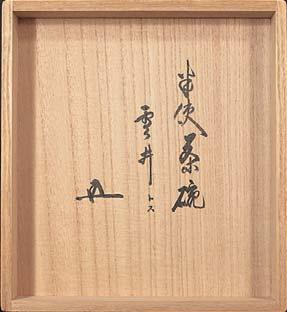 半使茶碗
雲井トス